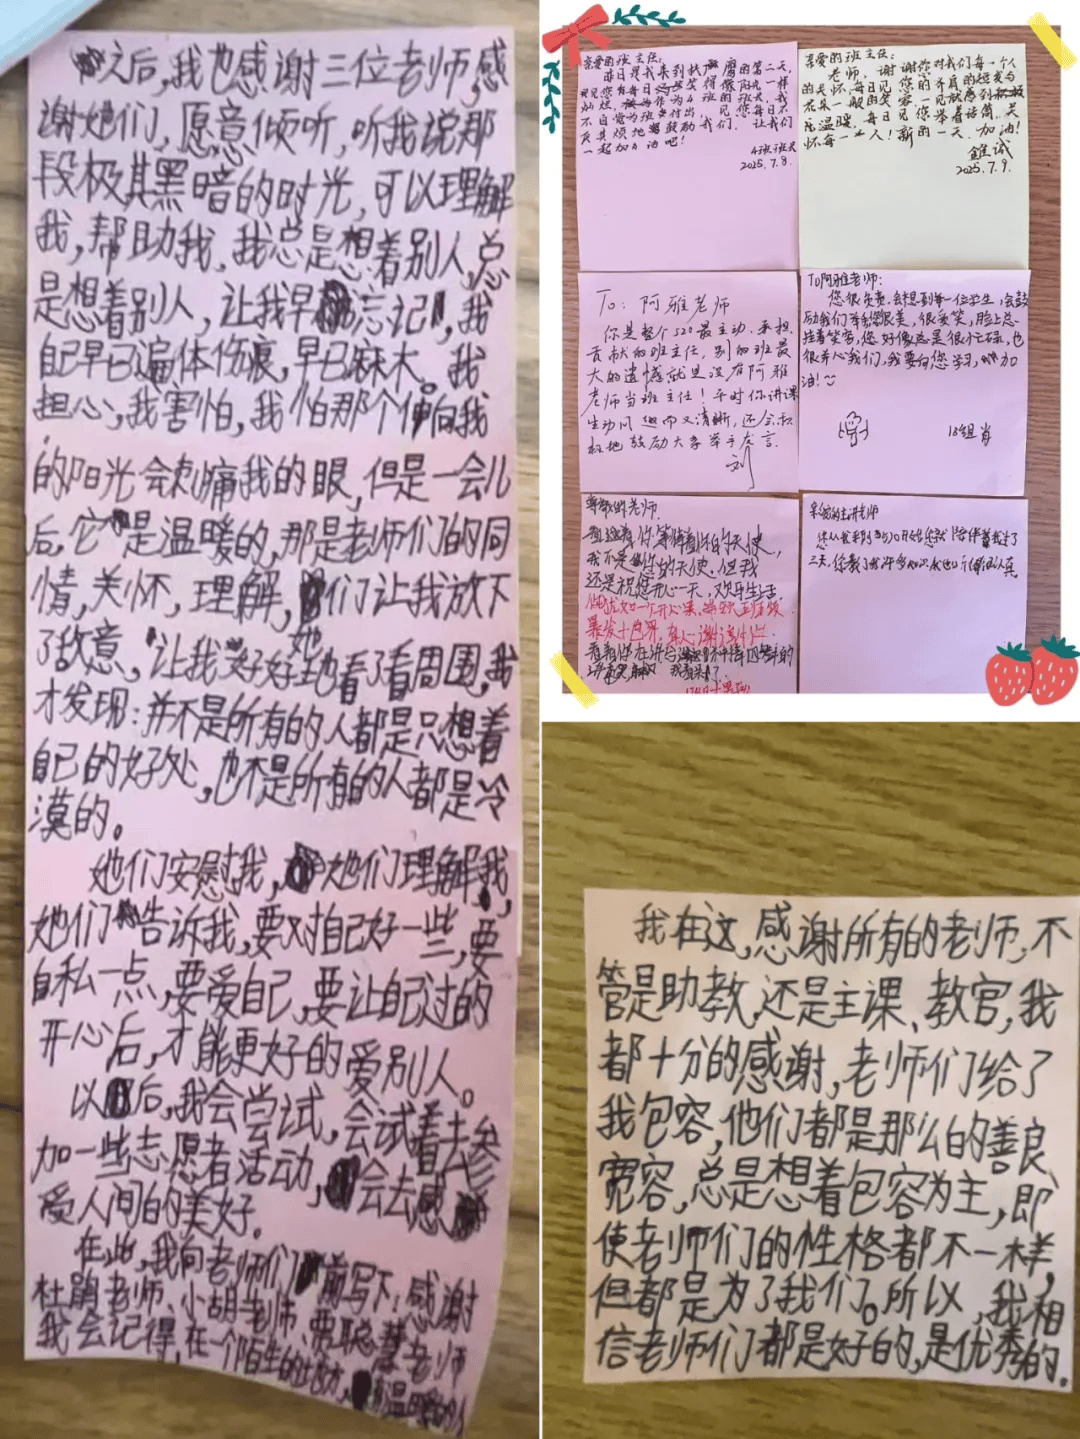 之后,我也感谢三位老师,感
谢她们,愿意倾听,听我说那
段极其黑暗的时光,可以理解
我,帮助我,我总是想着别人,总
是想着别人,让我早忘记,我
自己早已遍体伤痕,早已麻木。我
担心,我害怕,我怕那个伸向我
的阳光会刺痛我的眼,但是一会儿
后,它是温暖的,那是老师们的同
情,关怀,理解,们让我放下
了敌意,让我好好地看了看周围,我
她
才发现:并不是所有的人都是只想着
自己的好处,也不是所有的人都是冷
漠的。
她们安慰我,她们理解我,
她们告诉我,要对自己好一些,要
自私一点,要爱自己,要让自己过的
开心后,才能更好的爱别人。
以后,我会尝试,会试着去参
加一些志愿者活动,会去感
受人间的美好。
在此,我向老师们前写下:感谢
杜鹃老师、小胡老师、栗聪慧老师
我会记得,在一个陌生的地方,有温暖的人
亲爱的班主任:
昨日是我来到的第二天,
观您每日笑得像阳光一样
灿烂,作为4班的班长,我
不自觉为班付出,见您每日
反其烦地鼓励我们,让我们
一起加油吧!
4班班长
2025.7.8.
亲爱的班主任:
老师,谢谢你对我们每一个人
的关怀,每日见您的不肩的短发与
花朵一般的笑容一见就感到
元温暖,每日见您举着话筒,关
怀每一人!新的一天,加油!
2025.7.9.
To:阿雅老师
你是整个520最主动、承担
贡献的班主任,别的班最
大的遗憾就是没有阿雅
老师当班主任!平时你讲课
生动风趣而又清晰,还会积
极地鼓励大家举手发言.
刘
To阿雅老师:
您很负责,会想到每一位学生,会鼓
励我们举手,您很美,很爱笑,脸上总
挂着笑容,您好像总是很忙碌,也
很关心我们,我要向您学习,加
油!
13组肖
尊敬的老师
我不是你的天使,但我
还是祝您开心一天,欢乐生活.
亲爱的主讲老师
三天,你教了我许多知识,我也
我在这,感谢所有的老师,不
管是助教,还是主课、教官,我
都十分的感谢,老师们给了
我包容,他们都是那么的善良、
宽容,总是想着包容为主,即
使老师们的性格都不一样,
但都是为了我们。所以,我相
信老师们都是好的,是优秀的.